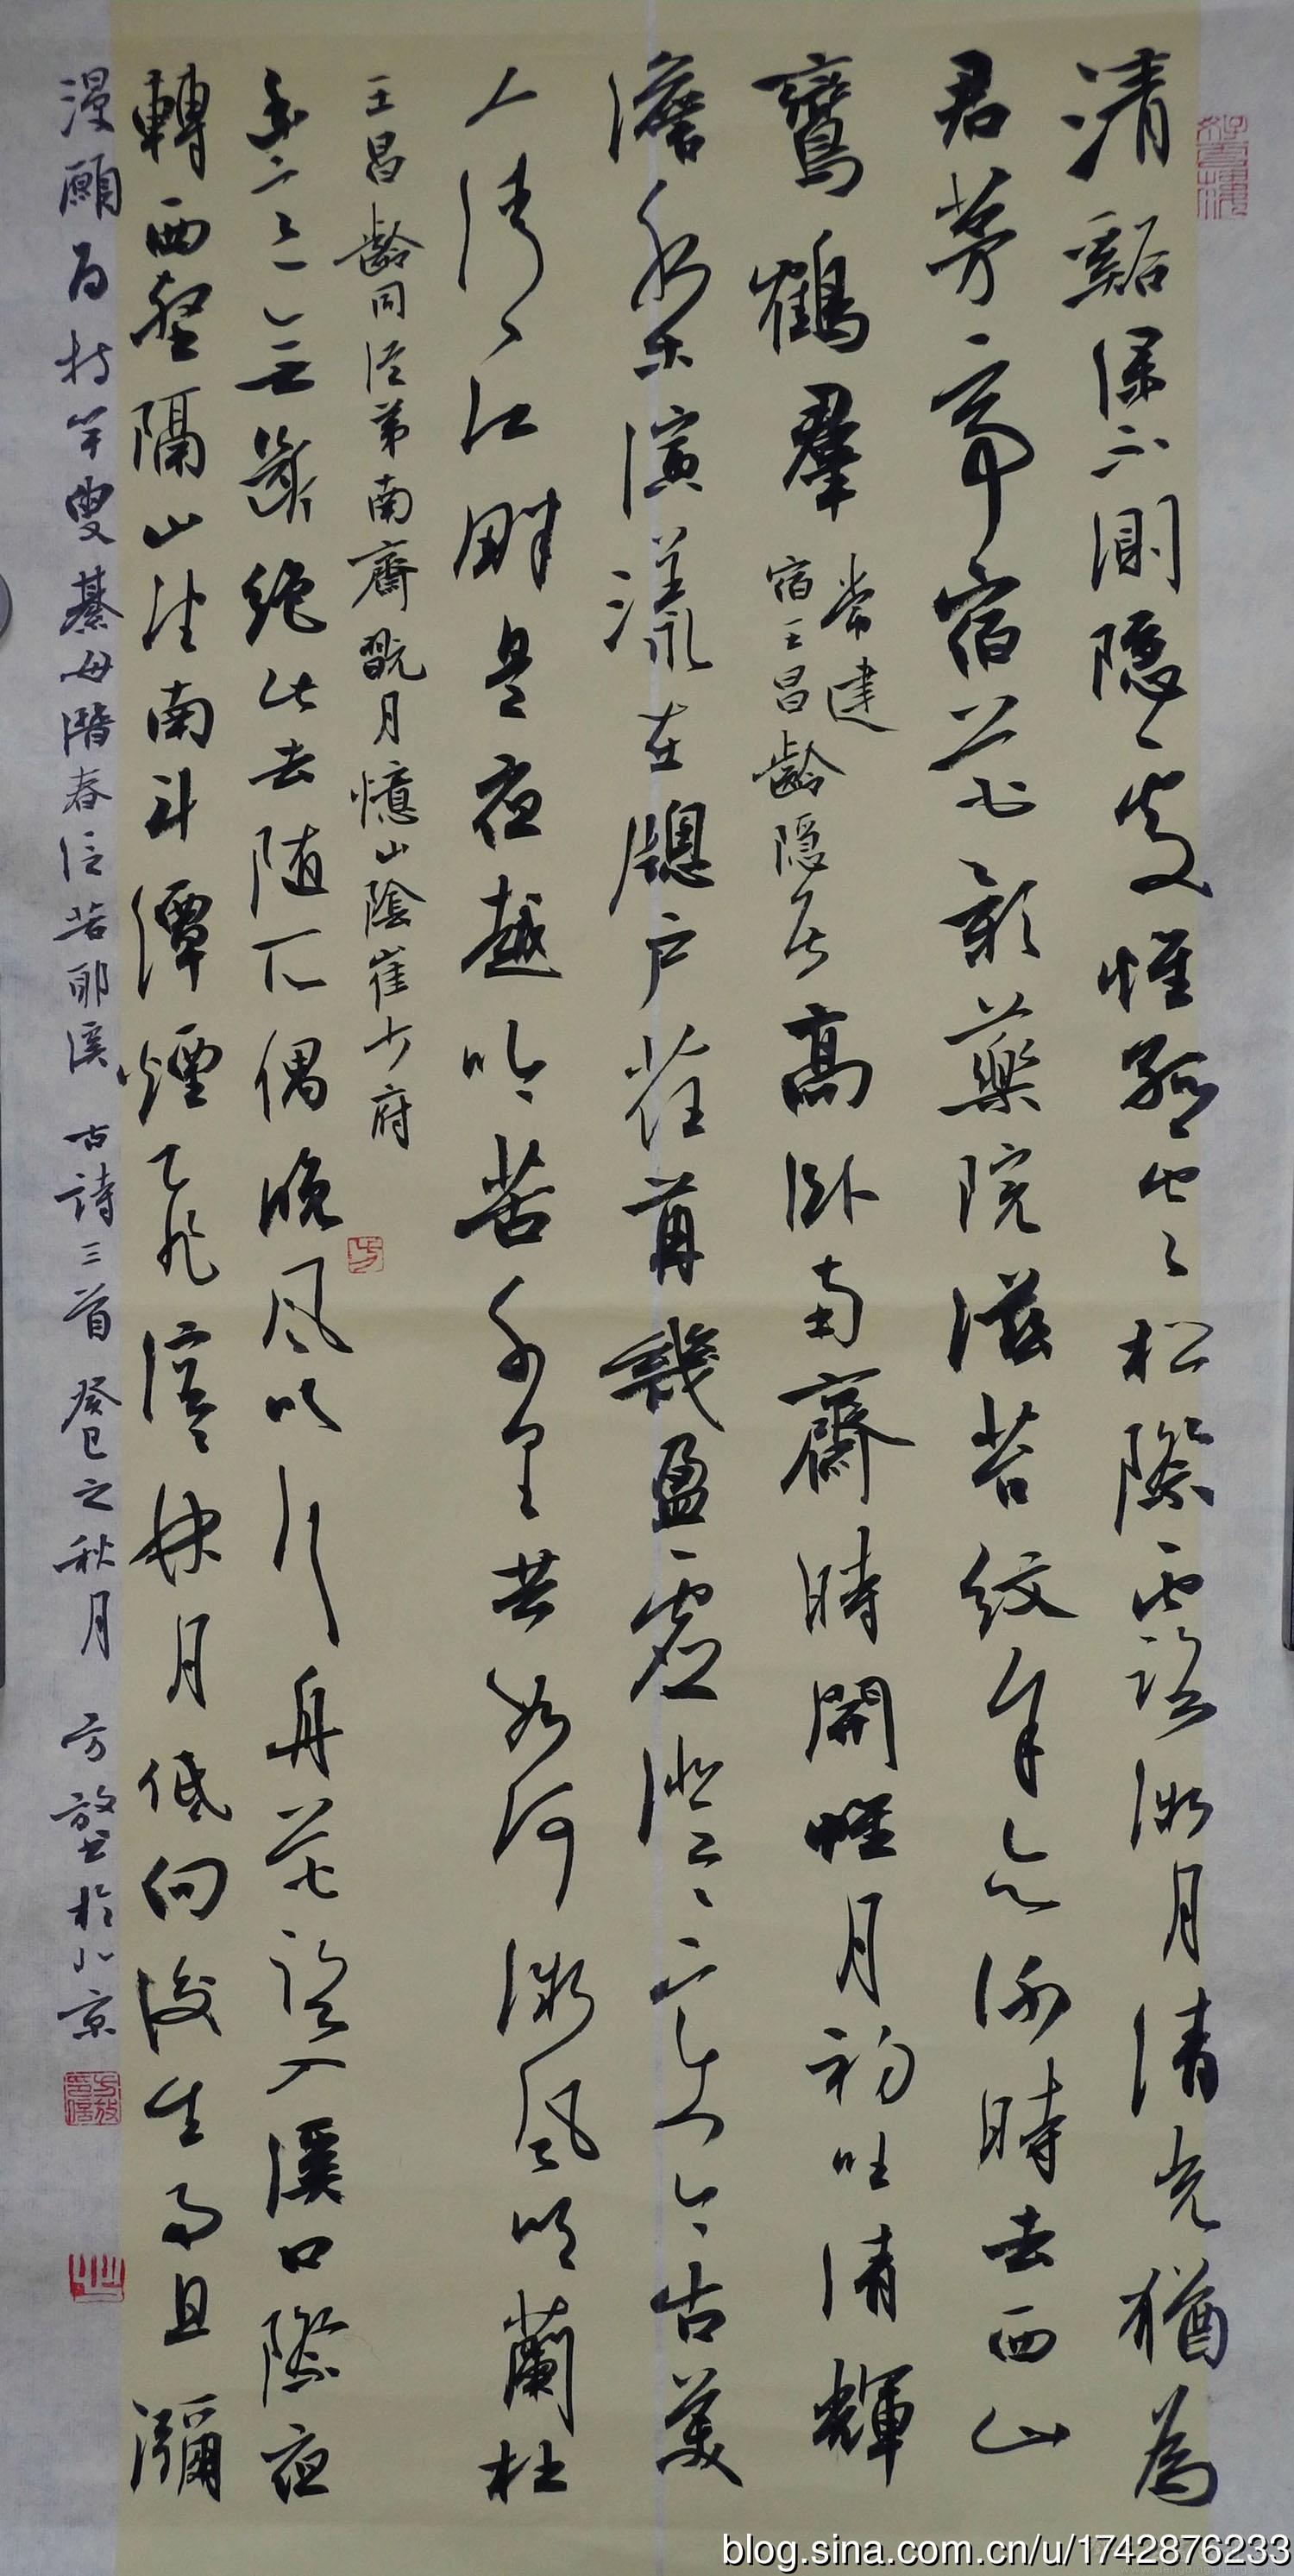 清谿深不測隱處惟孤雲松際露微月清光猶為
君茅亭宿花影藥院滋苔紋余亦謝時去西山
鸞鶴羣
常建
宿王昌齡隱居
高臥南齋時開帷月初吐清輝
澹水木演漾在牕戶荏苒幾盈虛澄澄變今古美
人清江畔是夜越吟苦千里共如何微風吹蘭杜
王昌齡同從弟南齋翫月憶山陰崔少府
幽意無斷絕此去隨所偶晚風吹行舟花路入溪口際夜
轉西壑隔山望南斗潭煙飛溶溶林月低向後生事且瀰
漫願為持竿叟綦毋潛春泛若耶溪 古詩三首 癸巳之秋月 方放書於北京
blog.sina.com.cn/u/1742876233